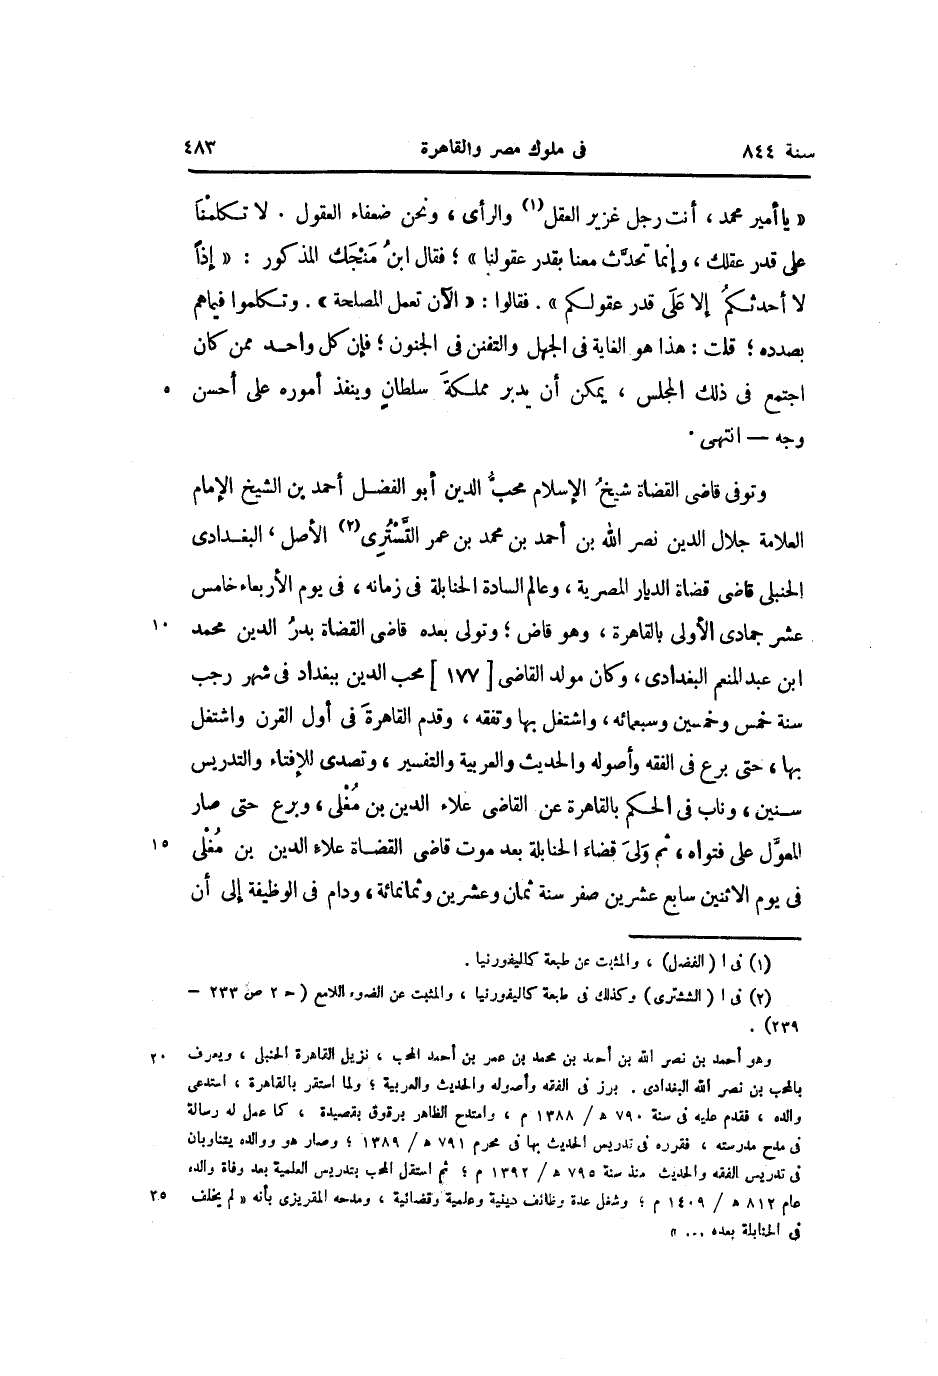 سنة ٨٤٤ فى ملوك مصر والقاهرة ٤٨٣
« يا أمير محمد ، أنت رجل غزير العقل(١) والرأى ، ونحن ضعفاء العقول . لا تكلمْنَا
على قدر عقلك ، وإنما تحدَّث معنا بقدر عقولنا » ؛ فقال ابنُ مَنْجَك المذكور : « إذاً
لا أحدثكمُ إلا عَلَى قدر عقولكم » . فقالوا : « الآن تعمل المصلحة » . وتكلموا فيماهم
بصدده ؛ قلت : هذا هو الغاية فى الجهل والتفنن فى الجنون ؛ فإن كل واحد ممن كان
اجتمع فى ذلك المجلس ، يمكن أن يدبر مملكةَ سلطانٍ وينفذ أموره على أحسن ٥
وجه — انتهى .
وتوفى قاضى القضاة شيخُ الإسلام محبُّ الدين أبو الفضل أحمد بن الشيخ الإمام
العلامة جلال الدين نصر الله بن أحمد بن محمد بن عمر التَّسْتُرِى(٢) الأصل ، البغدادى
الحنبلى قاضى قضاة الديار المصرية ، وعالم السادة الحنابلة فى زمانه ، فى يوم الأربعاء خامس
عشر جمادى الأولى بالقاهرة ، وهو قاض ؛ وتولى بعده قاضى القضاة بدرُ الدين محمد ١٠
ابن عبد المنعم البغدادى ، وكان مولد القاضى [ ١٧٧ ] محب الدين ببغداد فى شهر رجب
سنة خمس وخمسين وسبعمائه ، واشتغل بها وتفقه ، وقدم القاهرةَ فى أول القرن واشتغل
بها ، حتى برع فى الفقه وأصوله والحديث والعربية والتفسير ، وتصدى للإفتاء والتدريس
سنين ، وناب فى الحكم بالقاهرة عن القاضى علاء الدين بن مُغْلى ، وبرع حتى صار
المعوَّل على فتواه ، ثم وَلىَ قضاء الحنابلة بعد موت قاضى القضاة علاء الدين بن مُغْلى ١٥
فى يوم الاثنين سابع عشرين صفر سنة ثمان وعشرين وثمانمائة ، ودام فى الوظيفة إلى أن
(١) فى ا ( الفضل ) ، والمثبت عن طبعة كاليفورنيا .
(٢) فى ا ( الششترى ) وكذلك فى طبعة كاليفورنيا ، والمثبت عن الضوء اللامع ( ح ٢ ص ٢٣٣ —
٢٣٩ ) .
وهو أحمد بن نصر الله بن أحمد بن محمد بن عمر بن أحمد المحب ، نزيل القاهرة الحنبلى ، ويعرف ٢٠
بالمحب بن نصر الله البغدادى . برز فى الفقه وأصوله والحديث والعربية ؛ ولما استقر بالقاهرة ، استدعى
والده ، فقدم عليه فى سنة ٧٩٠ ه / ١٣٨٨ م ، وامتدح الظاهر برقوق بقصيدة ، كما عمل له رسالة
فى مدح مدرسته ، فقرره فى تدريس الحديث بها فى محرم ٧٩١ ه / ١٣٨٩ ؛ وصار هو ووالده يتناوبان
فى تدريس الفقه والحديث منذ سنة ٧٩٥ ه / ١٣٩٢ م ؛ ثم استقل المحب بتدريس العلمية بعد وفاة والده
عام ٨١٢ ه / ١٤٠٩ م ؛ وشغل عدة وظائف دينية وعلمية وقضائية ، ومدحه المقريزى بأنه « لم يخلف ٢٥
فى الحنابلة بعده ... »